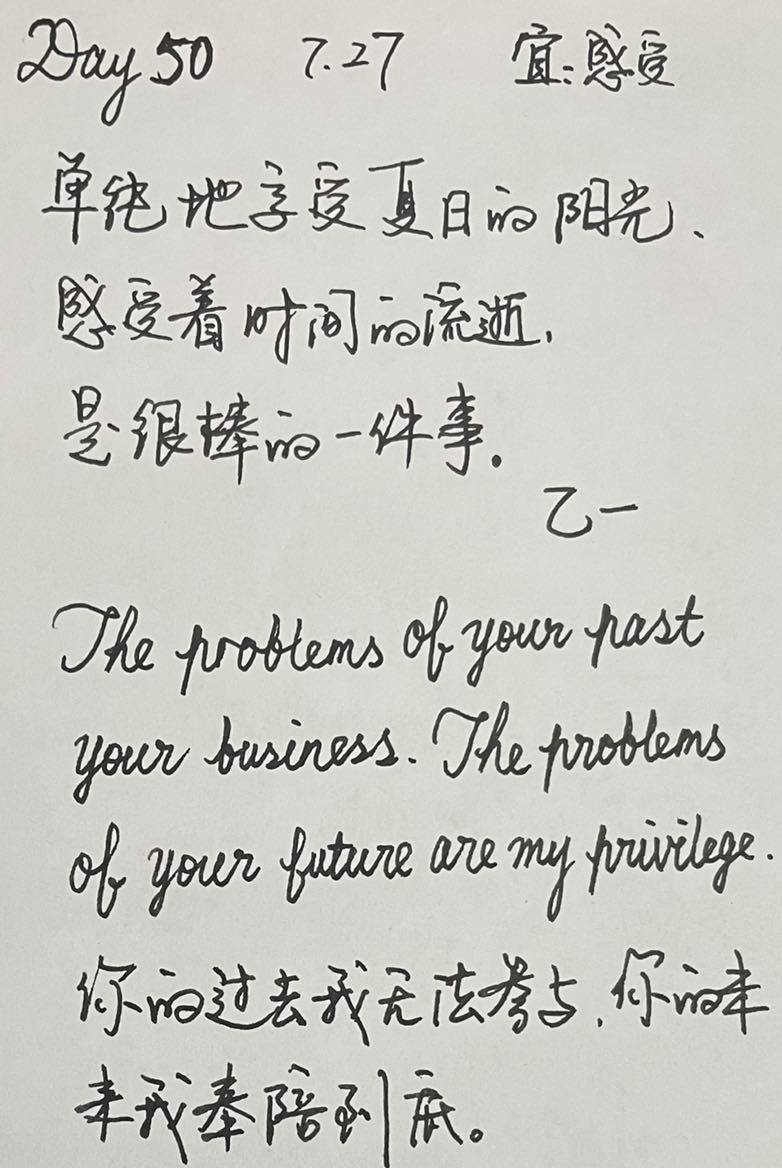 Day 50 7.27 宜:感受
单纯地享受夏日的阳光、
感受着时间的流逝,
是很棒的一件事.
乙一
The problems of your past
your business. The problems
of your future are my privilege.
你的过去我无法参与,你的未
来我奉陪到底。